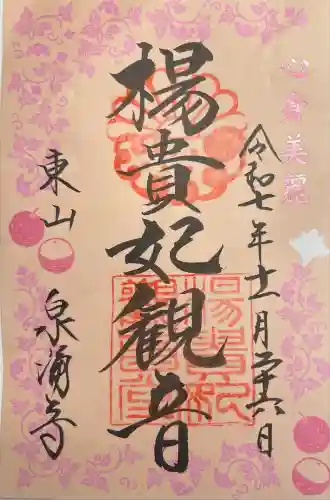 心身美麗
令和七年十一月二十六日
楊貴妃観音
東山
泉涌寺
楊貴妃観音堂